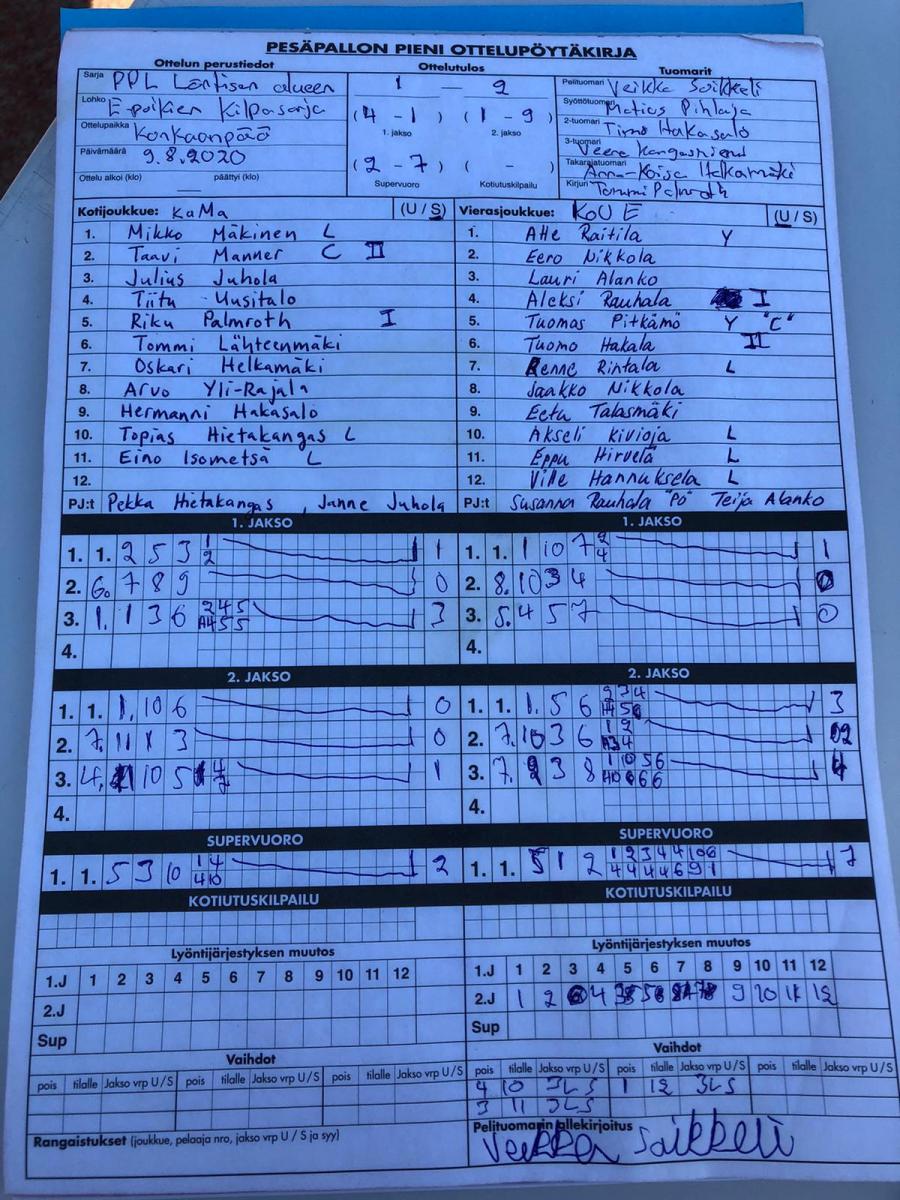 PESÄPALLON PIENI OTTELUPÖYTÄKIRJA
Ottelun perustiedot Ottelutulos Tuomarit
Sarja PPL Läntisen alueen
Lohko E-poikien Kilpasarja
Ottelupaikka Konkaanpää
Päivämäärä 9.8.2020
Ottelu alkoi (klo) — päättyi (klo)
1 — 2
(4 - 1) (1 - 9)
1. jakso 2. jakso
(2 - 7) ( - )
Supervuoro Kotiutuskilpailu
Pelituomari Veikka Soikkeli
Syöttötuomari Matias Pihlaja
2-tuomari Timo Hakasalo
3-tuomari Veera Kangasniemi
Takarajatuomari Anna-Kaisa Helkamäki
Kirjuri Tommi Palmroth
Kotijoukkue: KaMa (U / S)
1. Mikko Mäkinen L
2. Taavi Manner C II
3. Julius Juhola
4. Tiitu Uusitalo
5. Riku Palmroth I
6. Tommi Lähteenmäki
7. Oskari Helkamäki
8. Arvo Yli-Rajala
9. Hermanni Hakasalo
10. Topias Hietakangas L
11. Eino Isometsä L
12.
PJ:t Pekka Hietakangas, Janne Juhola
Vierasjoukkue: KoU E (U / S)
1. Atte Raitila Y
2. Eero Nikkola
3. Lauri Alanko
4. Aleksi Rauhala I
5. Tuomas Pitkämö Y "C"
6. Tuomo Hakala II
7. Renne Rintala L
8. Jaakko Nikkola
9. Eetu Talasmäki
10. Akseli Kivioja L
11. Eppu Hirvelä L
12. Ville Hannuksela L
PJ:t Susanna Rauhala "PÖ" Teija Alanko
1. JAKSO
1. 1. 2 5 3 1 2 1
2. 6. 7 8 9 0
3. 1. 1 3 6 2 4 5 3
4.
1. JAKSO
1. 1. 1 10 7 2 4 1
2. 8. 10 3 4 0
3. 5. 4 5 7 0
4.
2. JAKSO
1. 1. 1. 10 6 0
2. 7. 11 1 3 0
3. 4. 10 5 4 7 1
4.
2. JAKSO
1. 1. 1. 5 6 2 3 4 3
2. 7. 10 3 6 1 2 2
3. 7. 2 3 8 1 10 5 6 4
4.
SUPERVUORO
1. 1. 5 3 10 1 4 4 10 2
SUPERVUORO
1. 1. 5 1 2 1 2 3 4 4 10 6 4 4 4 4 6 9 1 7
KOTIUTUSKILPAILU
KOTIUTUSKILPAILU
Lyöntijärjestyksen muutos
1.J 1 2 3 4 5 6 7 8 9 10 11 12
2.J
Sup
Lyöntijärjestyksen muutos
1.J 1 2 3 4 5 6 7 8 9 10 11 12
2.J 1 2 4 9 10 11 12
Sup
Vaihdot
pois tilalle Jakso vrp U / S pois tilalle Jakso vrp U / S pois tilalle Jakso vrp U / S
Vaihdot
pois tilalle Jakso vrp U / S pois tilalle Jakso vrp U / S pois tilalle Jakso vrp U / S
4 10 3LS 1 12 3LS
3 11 3LS
Rangaistukset (joukkue, pelaaja nro, jakso vrp U / S ja syy)
Pelituomarin allekirjoitus
Veikka Soikkeli